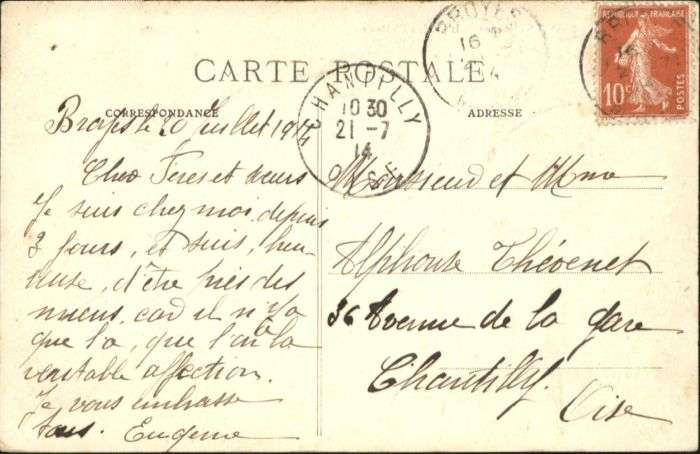 CARTE POSTALE
CORRESPONDANCE
ADRESSE
REPUBLIQUE FRANÇAISE
10c
POSTES
16
CHANTILLY
10 30
21 -7
14
OISE
le 20 Juillet
Cher Frères et sœurs
Je suis chez moi, depuis
3 jours, et suis, heu-
reuse, d'être près des
miens, card il n'y a
que la, que l'on a la
veritable affection.
Je vous embrasse
tous. Eugenie
Monsieur et Mme
Alphonse Thévenet
36 Avenue de la gare
Chantilly.
Oise